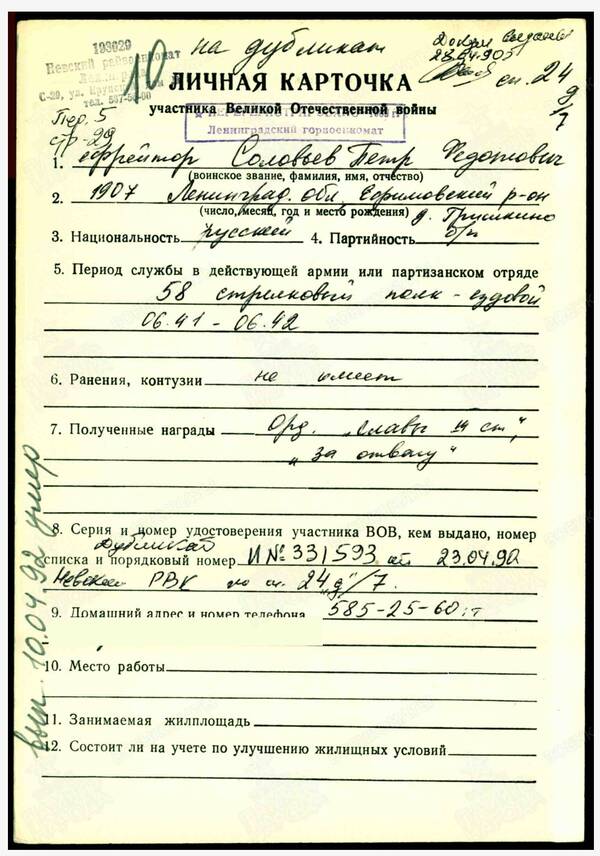 193029
Невский райвоенкомат
Ленинград
С-29, ул. Крупской
тел. 567-50-00
10 на дубликат
28.04.90г
сп. 24
д/7
Пер. 5
стр 29
ЛИЧНАЯ КАРТОЧКА
участника Великой Отечественной войны
Ленинградский горвоенкомат
1. ефрейтор Соловьев Петр Федотович
(воинское звание, фамилия, имя, отчество)
2. 1907 Ленинград. обл, Ефимовский р-он
(число, месяц, год и место рождения) д. Гришкино
3. Национальность русский 4. Партийность б/п
5. Период службы в действующей армии или партизанском отряде
58 стрелковый полк - ездовой
06.41 - 06.42
6. Ранения, контузии не имеет
7. Полученные награды Орд. „Славы III ст",
„За отвагу"
8. Серия и номер удостоверения участника ВОВ, кем выдано, номер
Дубликат
списка и порядковый номер И № 331593 от 23.04.92
Невским РВК по сп. 24 „д"/7.
9. Домашний адрес и номер телефона 585-25-60: т
10. Место работы
11. Занимаемая жилплощадь
12. Состоит ли на учете по улучшению жилищных условий
вып. 10.04.92 умер